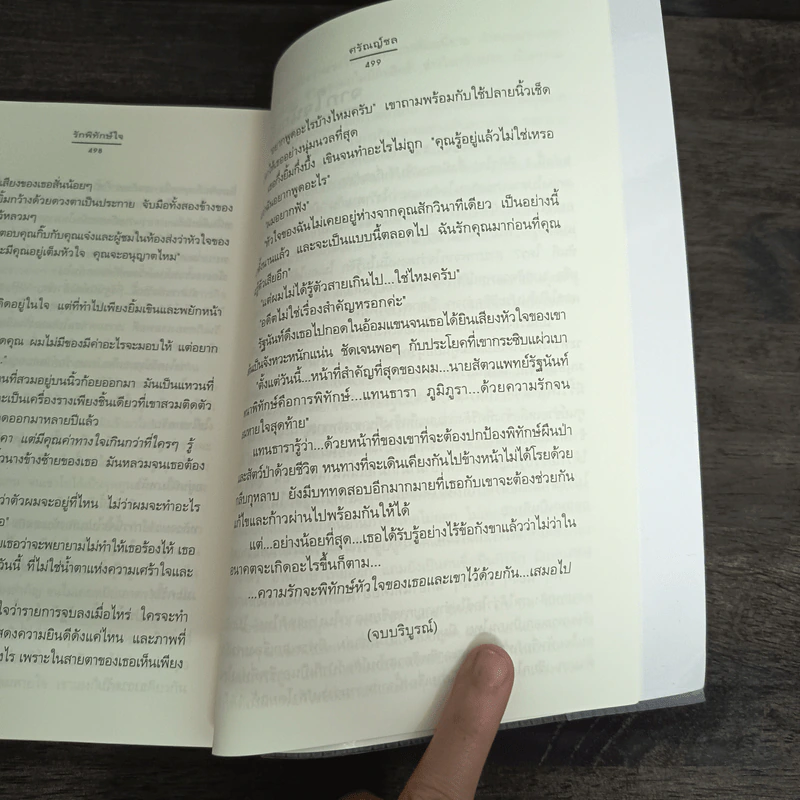 รักพิทักษ์ใจ
๔๙๘
เสียงของเธอสั่นน้อยๆ
ยิ้มกว้างด้วยดวงตาเป็นประกาย จับมือทั้งสองข้างของ
ไว้หลวมๆ
ตอบคุณกิ๊บกับคุณเจ๋งและผู้ชมในห้องส่งว่าหัวใจของ
จะมีคุณอยู่เต็มหัวใจ คุณจะอนุญาตไหม"
คิดอยู่ในใจ แต่ที่ทำไปเพียงยิ้มเขินและพยักหน้า
คุณ ผมไม่มีของมีค่าอะไรจะมอบให้ แต่อยาก
นที่สวมอยู่บนนิ้วก้อยออกมา มันเป็นแหวนที่
ะเป็นเครื่องรางเพียงชิ้นเดียวที่เขาสวมติดตัว
ดออกมาหลายปีแล้ว
คา แต่มีคุณค่าทางใจเกินกว่าที่ใครๆ รู้
วนางข้างซ้ายของเธอ มันหลวมจนเธอต้อง
ว่าตัวผมจะอยู่ที่ไหน ไม่ว่าผมจะทำอะไร
บเธอว่าจะพยายามไม่ทำให้เธอร้องไห้ เธอ
วันนี้ ที่ไม่ใช่น้ำตาแห่งความเศร้าใจและ
ใจว่ารายการจบลงเมื่อไหร่ ใครจะทำ
สดงความยินดีดังแค่ไหน และภาพที่
งไร เพราะในสายตาของเธอเห็นเพียง
ศรัณญ์ชล
๔๙๙
พูดอะไรบ้างไหมครับ" เขาถามพร้อมกับใช้ปลายนิ้วเช็ด
ให้เธออย่างนุ่มนวลที่สุด
เธอกึ่งยิ้มกึ่งบึ้ง เขินจนทำอะไรไม่ถูก "คุณรู้อยู่แล้วไม่ใช่เหรอ
อยากพูดอะไร"
"ผมอยากฟัง"
"หัวใจของฉันไม่เคยอยู่ห่างจากคุณสักวินาทีเดียว เป็นอย่างนี้
นานแล้ว และจะเป็นแบบนี้ตลอดไป ฉันรักคุณมาก่อนที่คุณ
เสียอีก"
"แต่ผมไม่ได้รู้ตัวสายเกินไป...ใช่ไหมครับ"
"อดีตไม่ใช่เรื่องสำคัญหรอกค่ะ"
รัฐนันท์ดึงเธอไปกอดในอ้อมแขนจนเธอได้ยินเสียงหัวใจของเขา
เป็นจังหวะหนักแน่น ชัดเจนพอๆ กับประโยคที่เขากระซิบแผ่วเบา
"ตั้งแต่วันนี้...หน้าที่สำคัญที่สุดของผม...นายสัตวแพทย์รัฐนันท์
พิทักษ์คือการพิทักษ์...แทนธารา ภูมิภูรา...ด้วยความรักจน
ลมหายใจสุดท้าย"
แทนธารารู้ว่า...ด้วยหน้าที่ของเขาที่จะต้องปกป้องพิทักษ์ผืนป่า
และสัตว์ป่าด้วยชีวิต หนทางที่จะเดินเคียงกันไปข้างหน้าไม่ได้โรยด้วย
กลีบกุหลาบ ยังมีบททดสอบอีกมากมายที่เธอกับเขาจะต้องช่วยกัน
แก้ไขและก้าวผ่านไปพร้อมกันให้ได้
แต่...อย่างน้อยที่สุด...เธอได้รับรู้อย่างไร้ข้อกังขาแล้วว่าไม่ว่าใน
อนาคตจะเกิดอะไรขึ้นก็ตาม...
...ความรักจะพิทักษ์หัวใจของเธอและเขาไว้ด้วยกัน...เสมอไป
(จบบริบูรณ์)